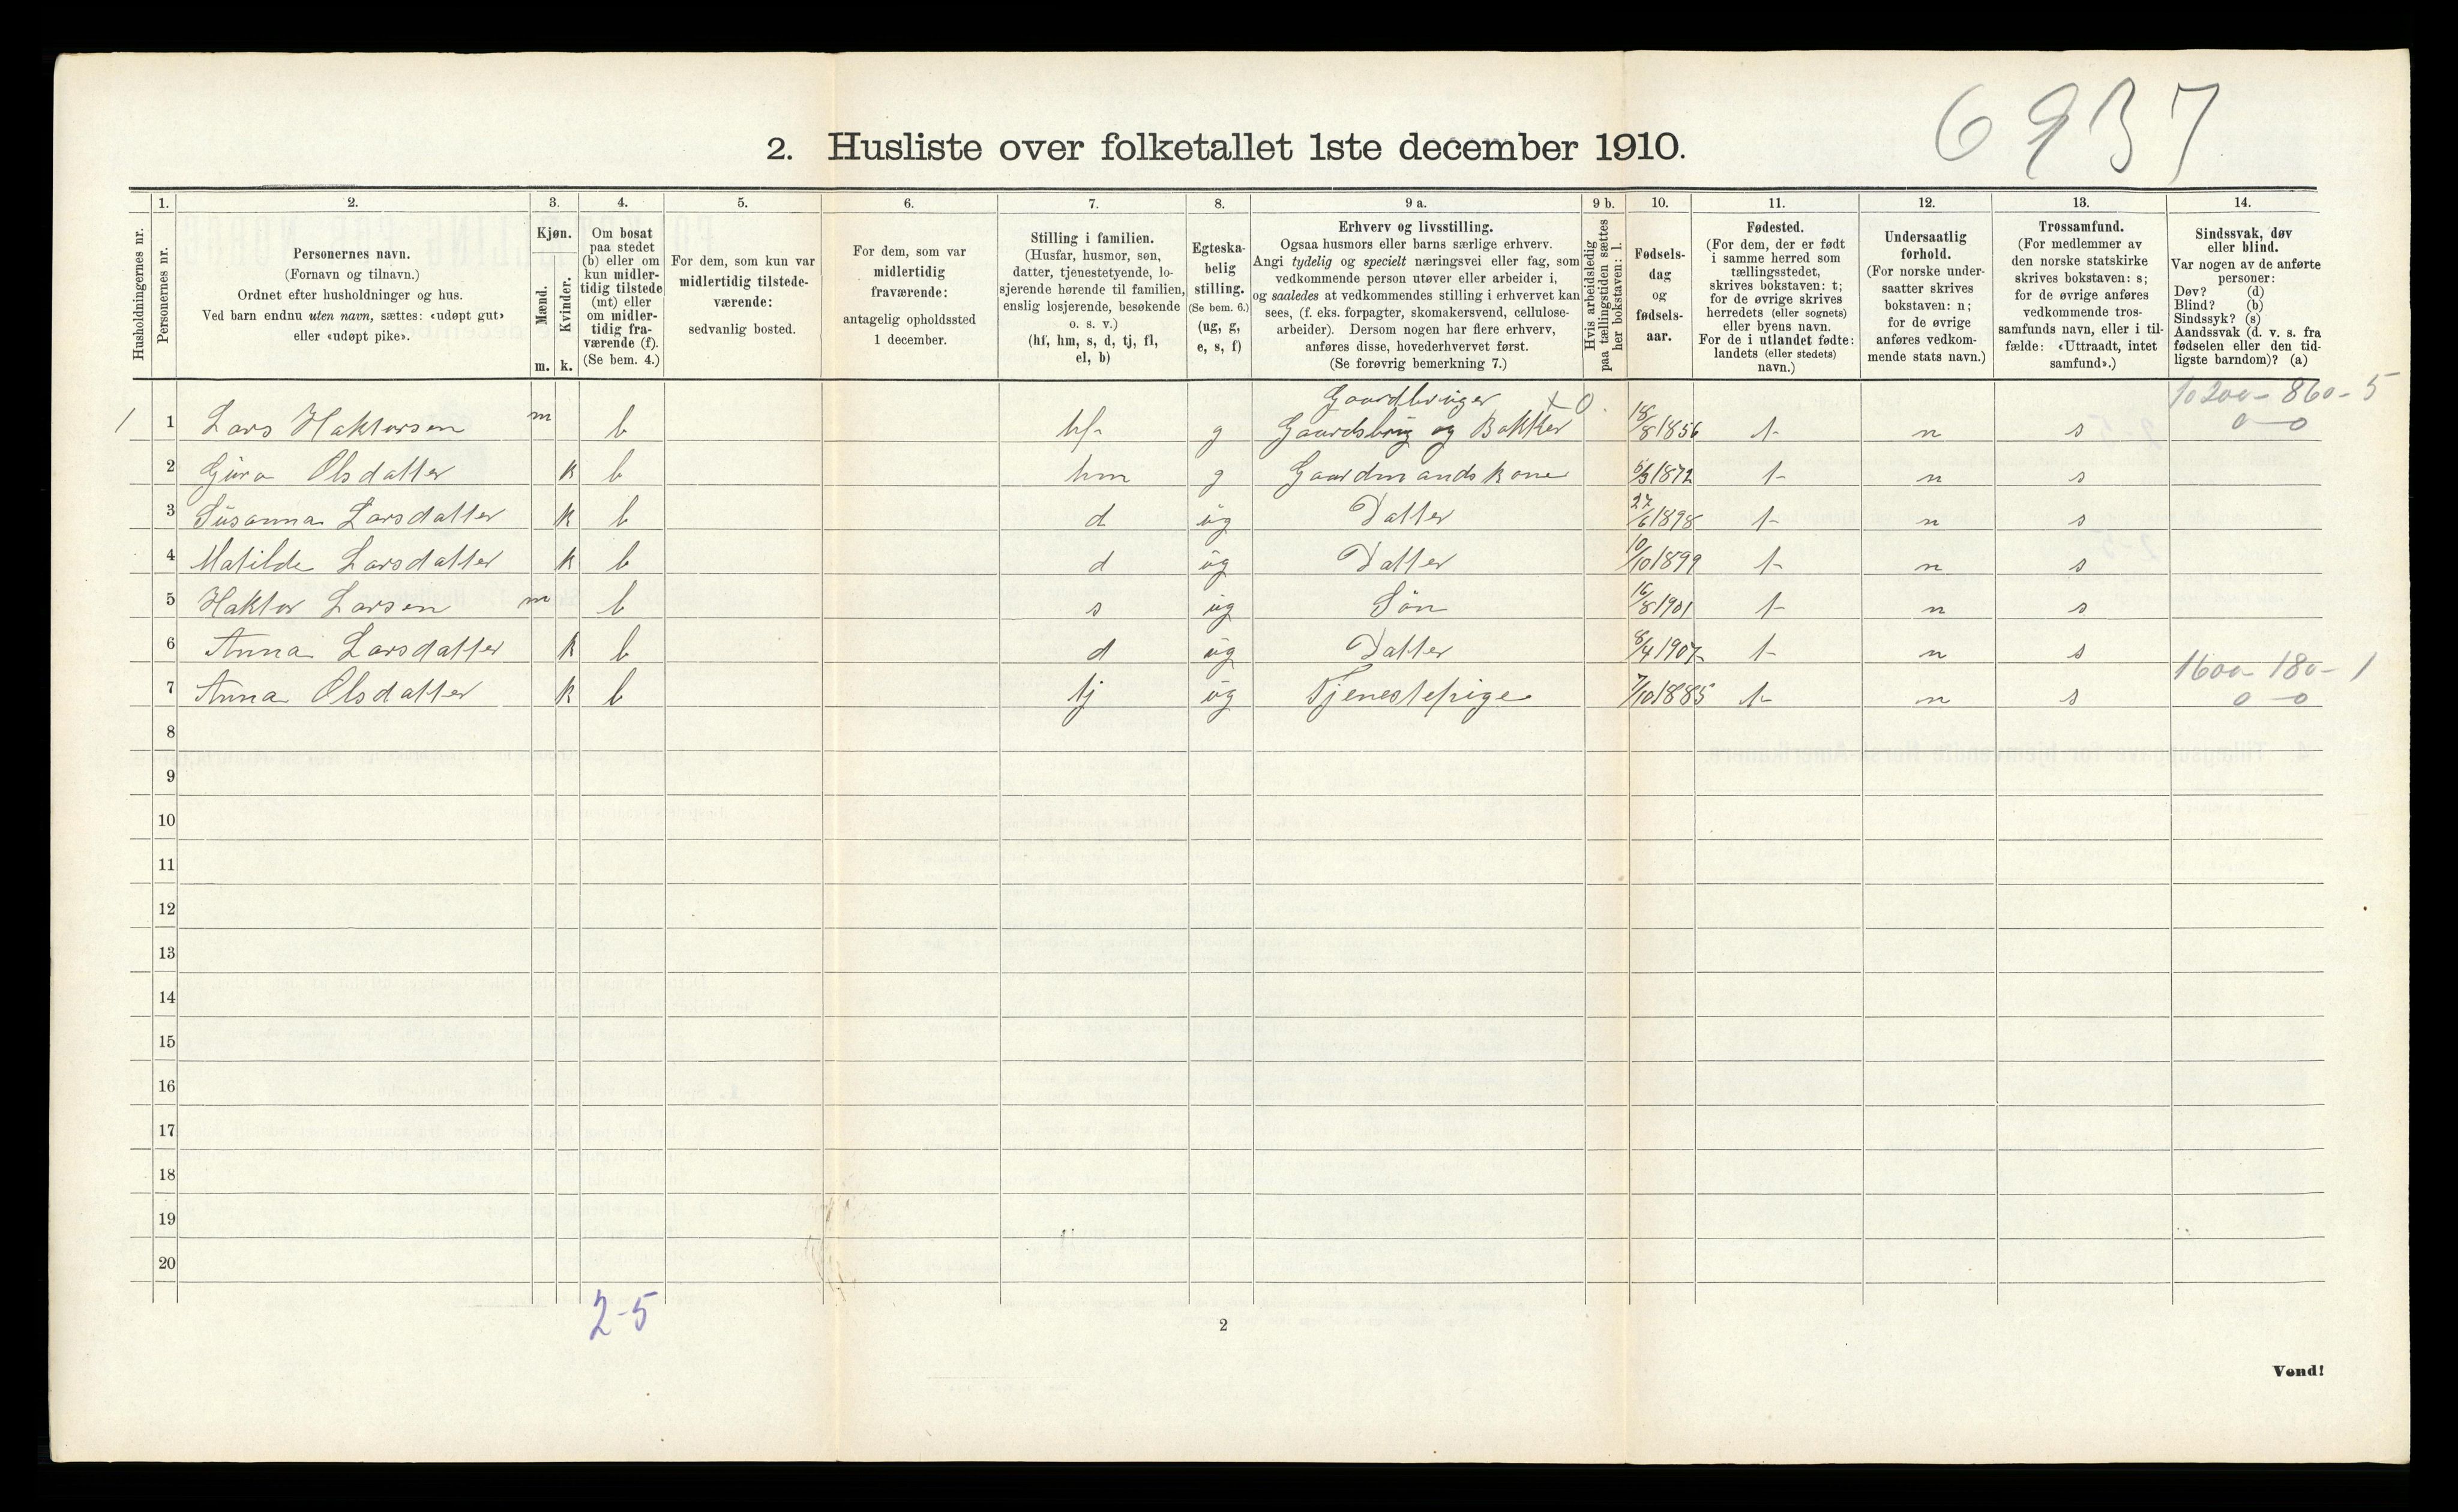 6937
2. Husliste over folketallet 1ste december 1910.
Husholdningernes nr.
1.
Personernes nr.
2.
Personernes navn.
(Fornavn og tilnavn.)
Ordnet efter husholdninger og hus.
Ved barn endnu uten navn, sættes: «udøpt gut»
eller «udøpt pike».
3.
Kjøn.
Mænd.
m.
Kvinder.
k.
4.
Om bosat
paa stedet
(b) eller om
kun midler-
tidig tilstede
(mt) eller
om midler-
tidig fra-
værende (f).
(Se bem. 4.)
5.
For dem, som kun var
midlertidig tilstede-
værende:
sedvanlig bosted.
6.
For dem, som var
midlertidig
fraværende:
antagelig opholdssted
1 december.
7.
Stilling i familien.
(Husfar, husmor, søn,
datter, tjenestetyende, lo-
sjerende hørende til familien,
enslig losjerende, besøkende
o. s. v.)
(hf, hm, s, d, tj, fl,
el, b)
8.
Egteska-
belig
stilling.
(Se bem. 6.)
(ug, g,
e, s, f)
9 a.
Erhverv og livsstilling.
Ogsaa husmors eller barns særlige erhverv.
Angi tydelig og specielt næringsvei eller fag, som
vedkommende person utøver eller arbeider i,
og saaledes at vedkommendes stilling i erhvervet kan
sees, (f. eks. forpagter, skomakersvend, cellulose-
arbeider). Dersom nogen har flere erhverv,
anføres disse, hovederhvervet først.
(Se forøvrig bemerkning 7.)
9 b.
Hvis arbeidsledig
paa tællingstiden sættes
her bokstaven: l.
10.
Fødsels-
dag
og
fødsels-
aar.
11.
Fødested.
(For dem, der er født
i samme herred som
tællingsstedet,
skrives bokstaven: t;
for de øvrige skrives
herredets (eller sognets)
eller byens navn.
For de i utlandet fødte:
landets (eller stedets)
navn.)
12.
Undersaatlig
forhold.
(For norske under-
saatter skrives
bokstaven: n;
for de øvrige
anføres vedkom-
mende stats navn.)
13.
Trossamfund.
(For medlemmer av
den norske statskirke
skrives bokstaven: s;
for de øvrige anføres
vedkommende tros-
samfunds navn, eller i til-
fælde: «Uttraadt, intet
samfund».)
14.
Sindssvak, døv
eller blind.
Var nogen av de anførte
personer:
Døv? (d)
Blind? (b)
Sindssyk? (s)
Aandssvak (d. v. s. fra
fødselen eller den tid-
ligste barndom)? (a)
Gaardbruger x 0 10200- 860- 5
1 1 Lars Haktorsen m b hf g Gaardsbrug og Bakker 18/8 1856 t n s 0 - 0
2 Guro Olsdatter k b hm g Gaardmandskone 5/3 1872 t n s
3 Susanna Larsdatter k b d ug Datter 27/6 1898 t n s
4 Matilde Larsdatter k b d ug Datter 10/10 1899 t n s
5 Haktor Larsen m b s ug Søn 16/8 1901 t n s
6 Anna Larsdatter k b d ug Datter 8/4 1907 t n s
1600- 180- 1
7 Anna Olsdatter k b tj ug Tjenestepige 7/10 1885 t n s 0 - 0
8
9
10
11
12
13
14
15
16
17
18
19
20
2-5
2
Vend!